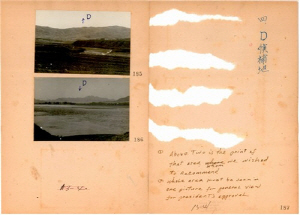 D
135
D
136
四 D候補地
① Above Two is the point of
that area where we wished
to recommend
② whole area must be seen in
one picture for general view
for president's approval.
137